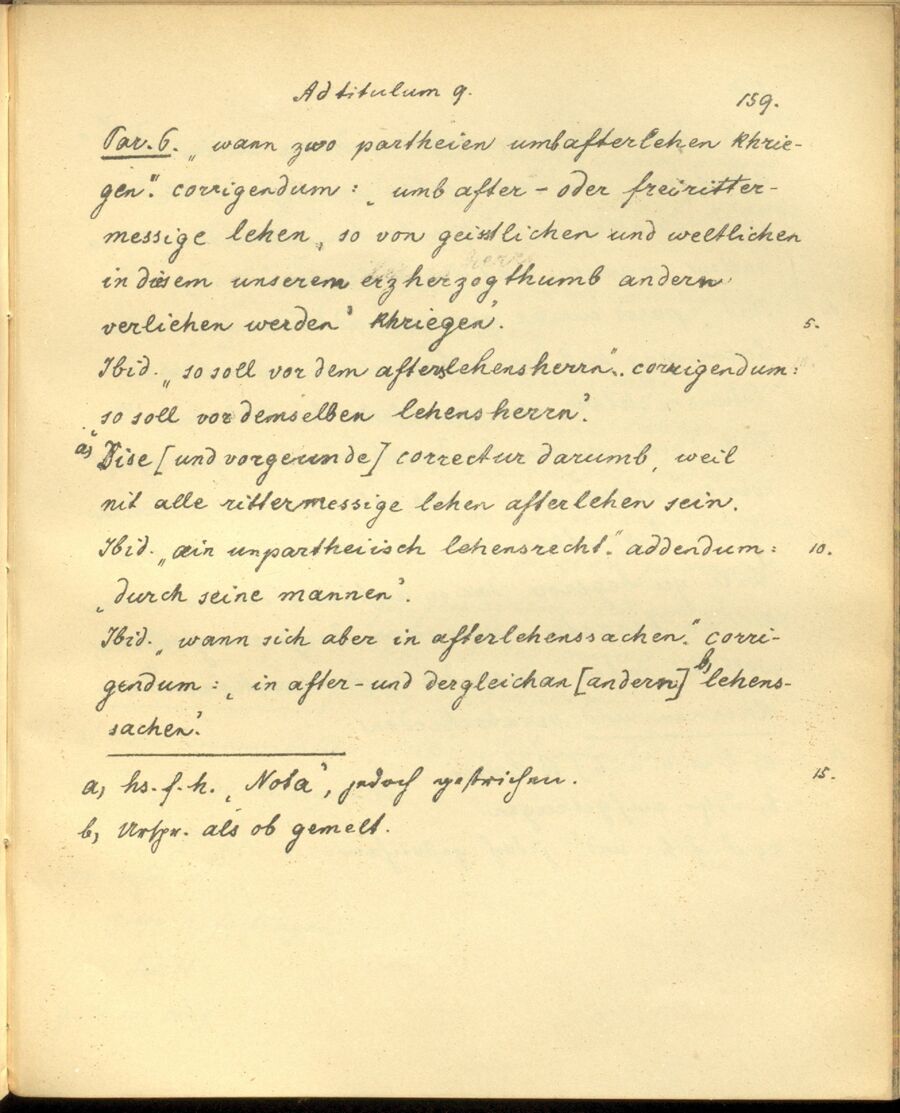 Ad titulum 9.
159.
Par. 6. „wann zwo partheien umb afterlehen khrie-
gen“. corrigendum: „umb after- oder freiritter-
messige lehen, so von geistlichen und weltlichen
in diesem unserem erzherzogthumb andern
verliehen werden‟ khriegen“.
5.
Ibid. „so soll vor dem afterslehensherrn“. corrigendum:
„so soll vor demselben lehensherrn“.
a) Dise [und vorgeunde] correctur darumb, weil
nit alle rittermessige lehen afterlehen sein.
Ibid. „ain unpartheiisch lehensrecht“. addendum:
10.
„durch seine mannen“.
Ibid. „wann sich aber in afterlehenssachen“. corri-
gendum: „in after- und dergleichen [andern] b) lehens-
sachen“.
a) hs. f. h. „Nota“, jedoch gestrichen.
15.
b) Urspr. als ob gemelt.